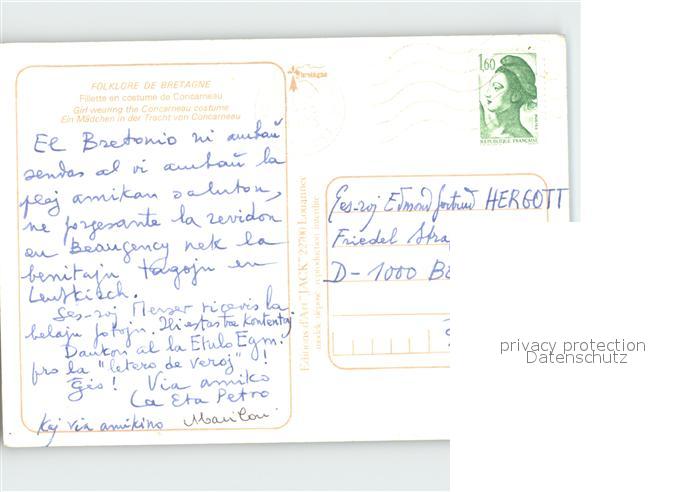 FOLKLORE DE BRETAGNE
Fillette en costume de Concarneau
Girl wearing the Concarneau costume
Ein Mädchen in der Tracht von Concarneau
El Bretonio ni ambaŭ
sendas al vi ambaŭ la
plej amikan saluton,
ne forgesante la revidon
en Beaugency nek la
benitajn tagojn en
Ges-roj Menser ricevis la
belajn fotojn. Ili estas tre kontentaj.
Dankon al la Etulo Egmi
pro la "letero de veroj"!
Ĝis! Via amiko
La Eta Petro
Kaj via amikino Marilou
bretagne
Editions d'Art "JACK" 22700 Louannec
modèle déposé reproduction interdite
1,60
REPUBLIQUE FRANÇAISE
Ges-roj Edmond Gertrud HERGOTT
Friedel
D-1000
privacy protection
Datenschutz